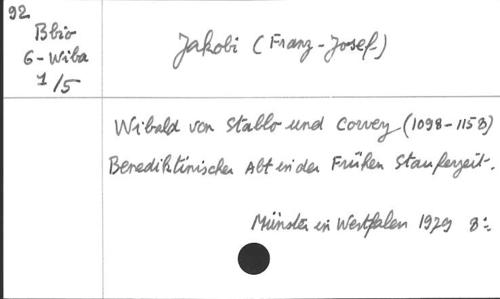 92
Bbio
G-Wiba
1/5
Jakobi (Franz-Josef)
Wibald von Stablo und Corvey (1098-1158)
Benediktinischer Abt in der Frühen Stauferzeit.
Münster in Westfalen 1979 8º